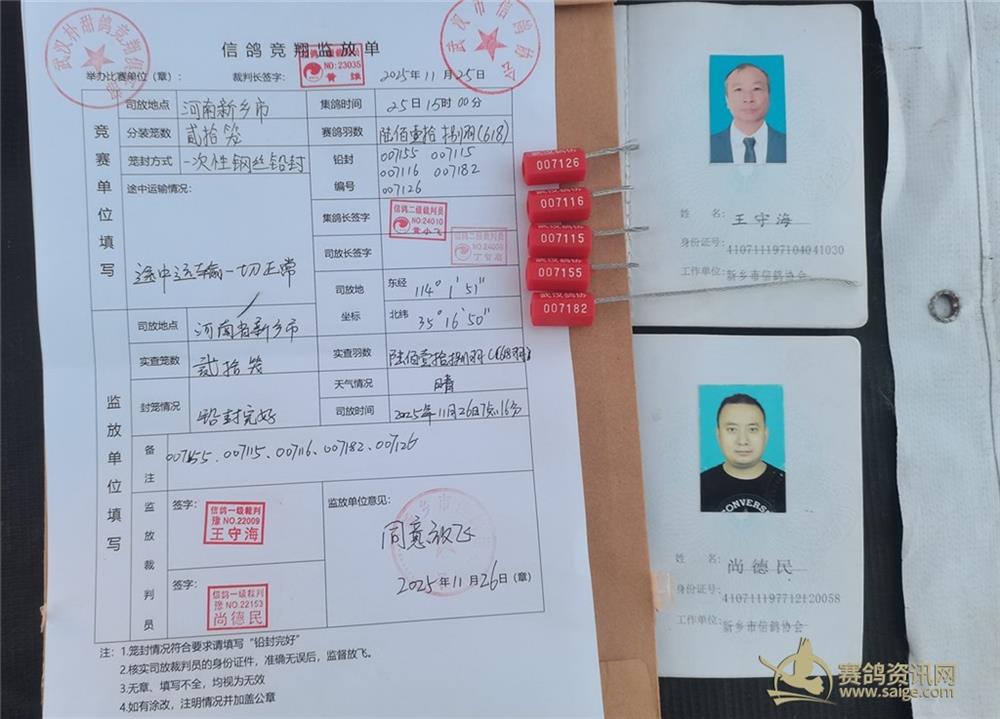 信鸽竞翔监放单
武汉市信鸽协会
NO:23035
举办比赛单位（章）： 裁判长签字： 2025年11月25日
竞赛单位填写
司放地点 河南新乡市 集鸽时间 25日15时00分
分装笼数 贰拾笼 赛鸽羽数 陆佰壹拾捌羽(618)
笼封方式 一次性钢丝铅封 铅封编号 007155 007115
007116 007182
007126
途中运输情况：
途中运输一切正常
集鸽长签字 信鸽二级裁判员
NO:24010
司放长签字 信鸽二级裁判员
司放地坐标 东经 114° 1′ 51″
北纬 35° 16′ 50″
监放单位填写
司放地点 河南省新乡市
实查笼数 贰拾笼 实查羽数 陆佰壹拾捌羽
天气情况 晴
封笼情况 铅封完好 司放时间 2025年11月26日7点16分
备注 007155、007115、007116、007182、007126
监放裁判员
签字： 信鸽一级裁判
豫 NO.22009
王守海
签字： 信鸽一级裁判
豫 NO.22153
尚德民
监放单位意见：
同意放飞
2025年11月26日（章）
注：1.笼封情况符合要求请填写“铅封完好”
2.核实司放裁判员的身份证件，准确无误后，监督放飞。
3.无章、填写不全，均视为无效
4.如有涂改，注明情况并加盖公章
007126
007116
007115
007155
007182
姓 名：王守海
身份证号：410711197104041030
工作单位：新乡市信鸽协会
CONVERSE
姓 名：尚德民
身份证号：410711197712120058
工作单位：新乡市信鸽协会
赛鸽资讯网
www.saige.com